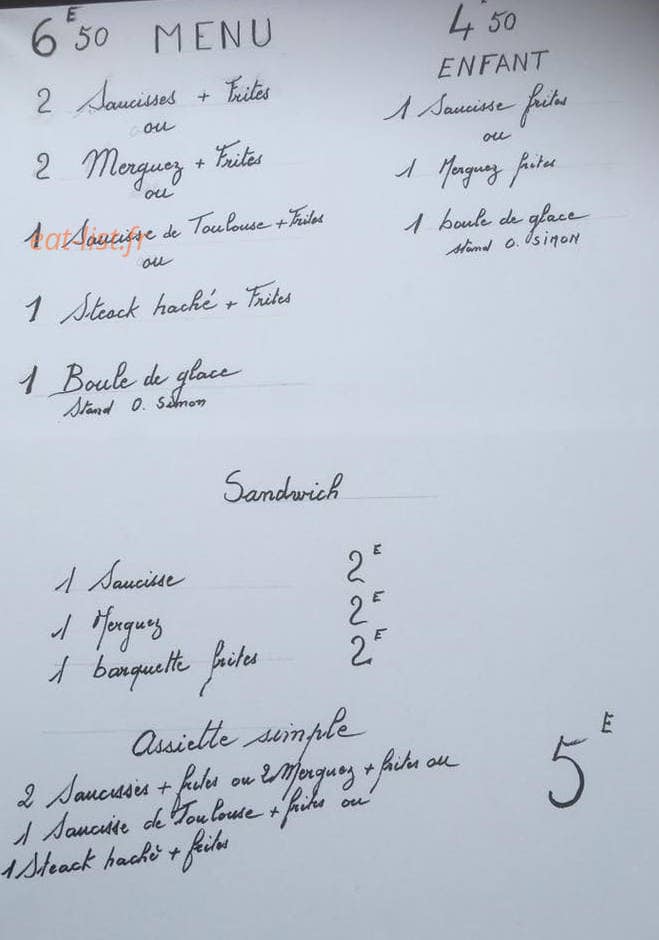 6E50 MENU
2 Saucisses + Frites
ou
2 Merguez + Frites
ou
1 Saucisse de Toulouse + Frites
eat-list.fr
ou
1 Steack haché + Frites
1 Boule de glace
Stand O. Simon
4'50
ENFANT
1 Saucisse frites
ou
1 Merguez frites
1 boule de glace
stand O. SIMON
Sandwich
1 Saucisse 2E
1 Merguez 2E
1 barquette frites 2E
Assiette simple
2 Saucisses + frites ou 2 Merguez + frites ou
1 Saucisse de Toulouse + frites ou
1 Steack haché + frites
5E